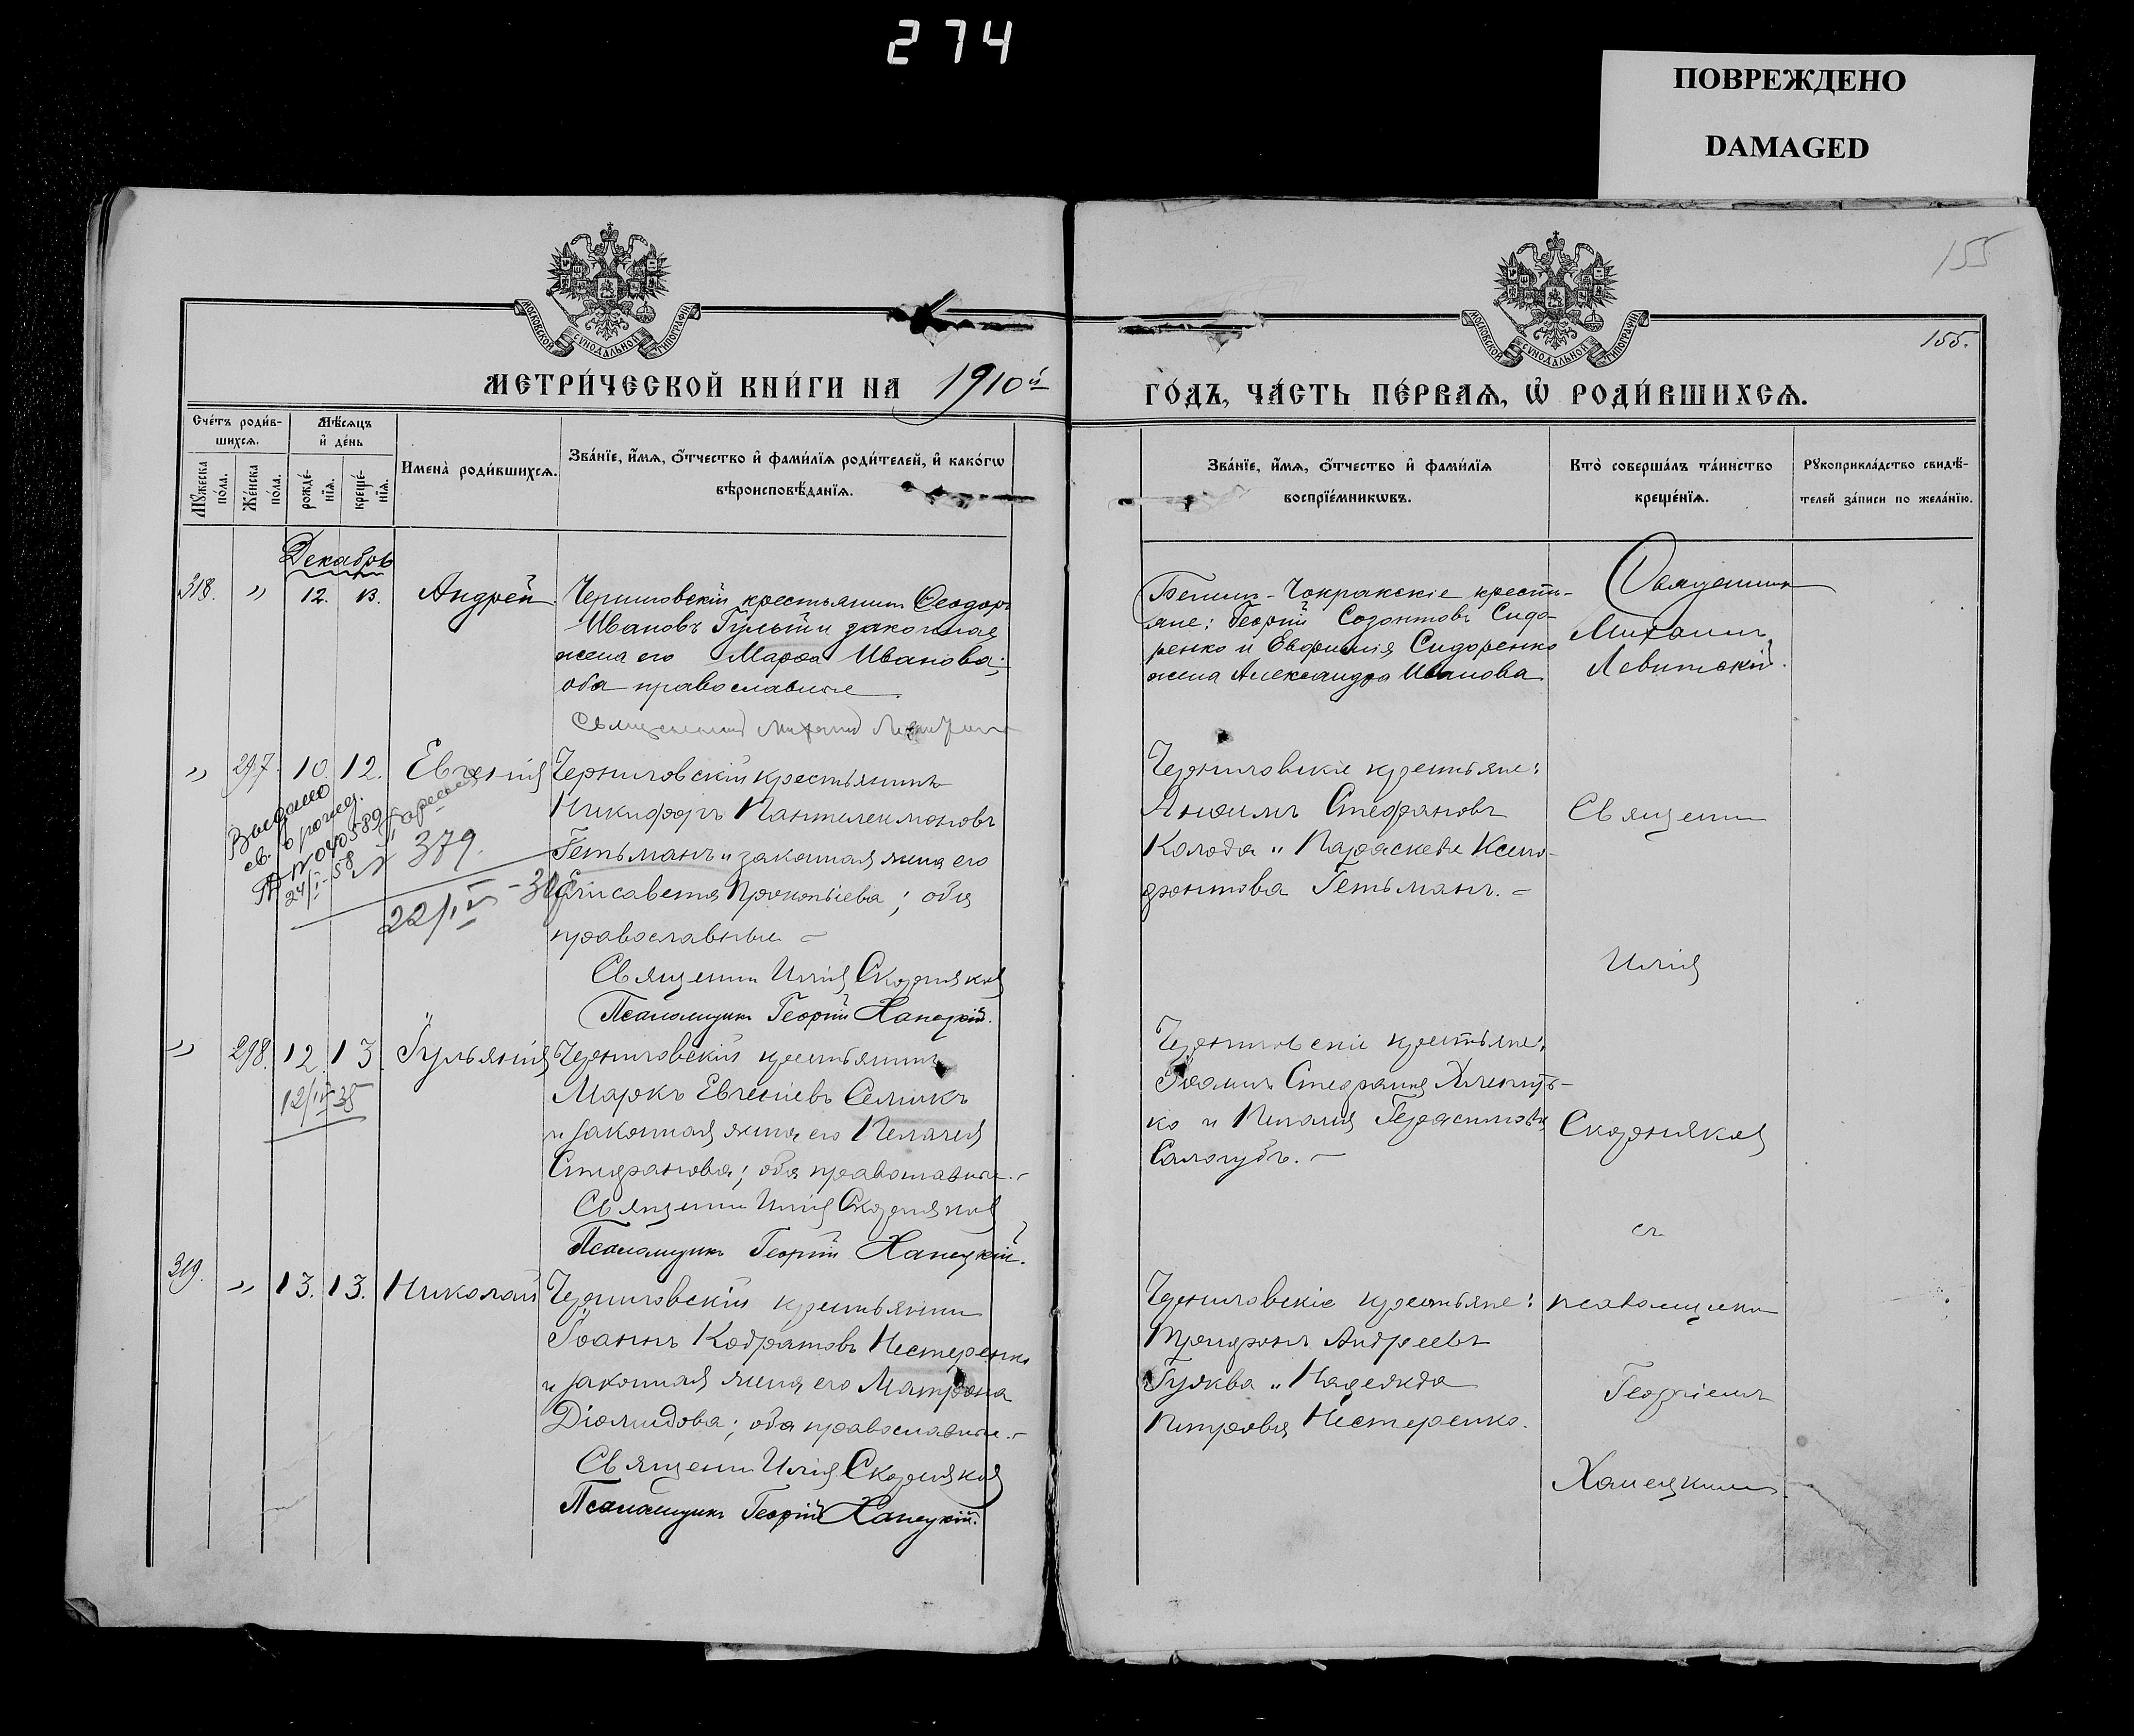 274
ПОВРЕЖДЕНО
DAMAGED
155
155.
МОСКОВСКОЙ СѴНОДАЛЬНОЙ ТИПОГРАФІИ
МОСКОВСКОЙ СѴНОДАЛЬНОЙ ТИПОГРАФІИ
МЕТРИ́ЧЕСКОЙ КНИ́ГИ НА 1910й
ГО́ДЪ, ЧА́СТЬ ПЕ́РВАѦ, Ѡ҆ РОДИ́ВШИХСѦ.
Сче́тъ роди́в-
шихсѧ.
Мѣ́сѧцъ
и҆ де́нь
Мꙋ́жеска
по́ла.
Же́нска
по́ла.
рожде́-
нїѧ.
креще́-
нїѧ.
Имена̀ роди́вшихсѧ.
Зва́нїе, и҆́мѧ, ѻ҆́тчество и҆ фами́лїѧ роди́телей, и҆ како́гѡ
вѣроисповѣ́данїѧ.
Зва́нїе, и҆́мѧ, ѻ҆́тчество и҆ фами́лїѧ
воспрїе́мникѡвъ.
Кто̀ соверша́лъ та́инство
креще́нїѧ.
Рꙋкоприкла́дство свидѣ́-
телей за́писи по жела́нїю.
Декабрь
318. " 12. 13. Андрей
Черниговскій крестьянинъ Ѳеодоръ
Ивановъ и законная
жена его Марѳа Иванова;
оба православные
Священникъ Михаилъ
Бешит-Чокракскіе крестья-
яне: Георгій Созонтовъ Сидо-
ренко и Евфимія Сидоренко
жена Александра Иванова
Священник
Михаилъ
Левитскій.
" 297. 10. 12. Евгенія
Черниговскій крестьянинъ
Никифоръ Пантелеимоновъ
Гетьманъ и законная жена его
Елисавета Прокопіева; оба
православные –
Священн Илія Скорняков
Псаломщикъ Георгій Ханецкій.
Выдано
св. о рожд.
№ 040589
24/I-58
379.
22/IV -38
Черниговскіе крестьяне:
Анѳимъ Стефановъ
Колода и Параскева Ксено-
фонтова Гетьманъ. –
Священн
Илія
" 298. 12. 13. Іульянія
12/IV 35
Черниговскій крестьянинъ
Маркъ Евгеніевъ Семикъ
и законная жена его Пелагія
Стефанова; оба православные. –
Священн Илія Скорняков
Псаломщикъ Георгій Ханецкій.
Черниговскіе крестьяне:
ко и Герасимова
Салогубъ. –
Скорняков
съ
319. " 13. 13. Николай
Черниговскій крестьянин
Іоаннъ Кодратовъ Нестеренко
и законная жена его Матрона
Діомидова; оба православные. –
Священн Илія Скорняков
Псаломщикъ Георгій Ханецкій.
Черниговскіе крестьяне:
Трифонъ Андреевъ
Гужва и Надежда
Петрова Нестеренко.
псаломщикомъ
Георгіемъ
Ханецкимъ.